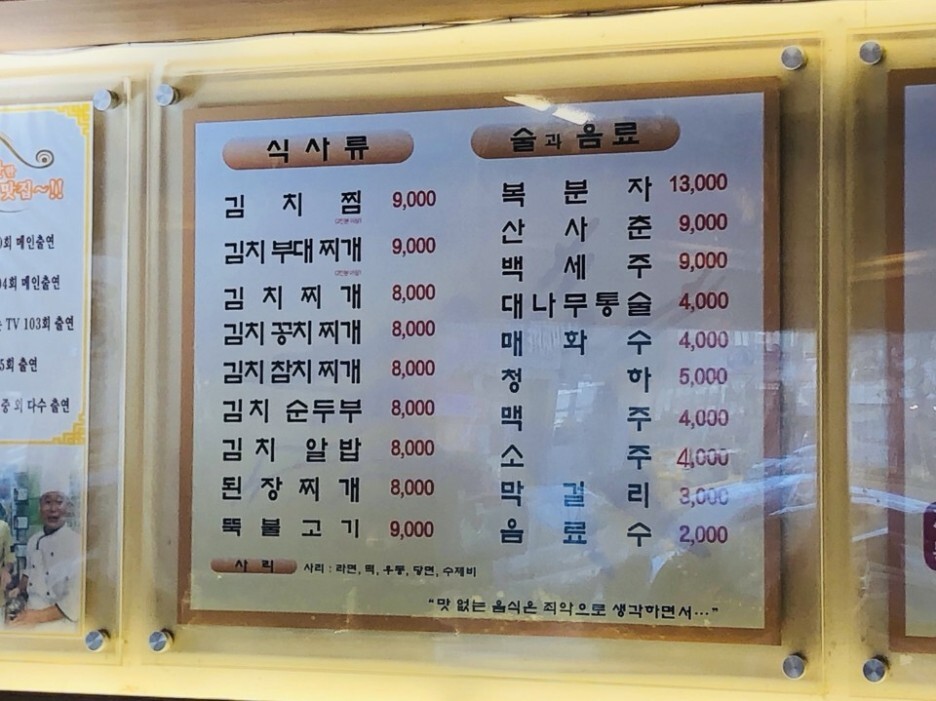 맛집~!!
회 메인출연
4회 메인출연
TV 103회 출연
5회 출연
중 외 다수 출연
식사류
김치찜 9,000
김치부대찌개 9,000
김치찌개 8,000
김치꽁치찌개 8,000
김치참치찌개 8,000
김치 순두부 8,000
김치 알밥 8,000
된장찌개 8,000
뚝불고기 9,000
사리 사리 : 라면, 떡, 우동, 당면, 수제비
술과 음료
복분자 13,000
산사춘 9,000
백세주 9,000
대나무통술 4,000
매화수 4,000
청하 5,000
맥주 4,000
소주 4,000
막걸리 3,000
음료수 2,000
"맛 없는 음식은 죄악으로 생각하면서..."